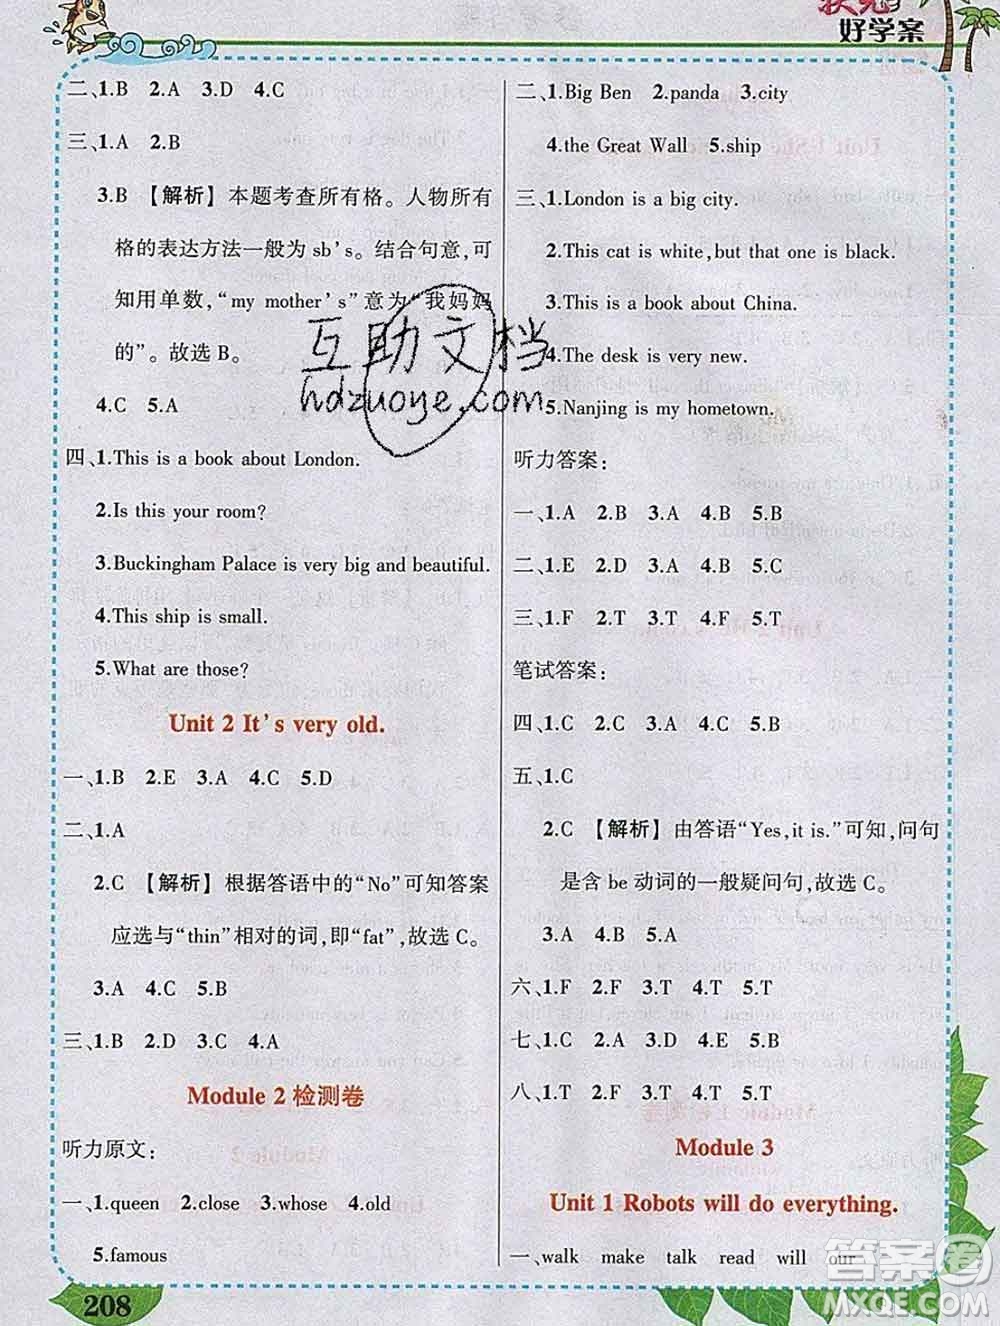 状元
好学案
二、1.B 2.A 3.D 4.C
三、1.A 2.B
3.B 【解析】本题考查所有格。人物所有
格的表达方法一般为 sb's。结合句意,可
知用单数,“my mother's”意为“我妈妈
的”。故选 B。
4.C 5.A
四、1.This is a book about London.
2.Is this your room?
3.Buckingham Palace is very big and beautiful.
4.This ship is small.
5.What are those?
Unit 2 It's very old.
一、1.B 2.E 3.A 4.C 5.D
二、1.A
2.C 【解析】根据答语中的“No”可知答案
应选与“thin”相对的词,即“fat”,故选 C。
3.A 4.C 5.B
三、1.B 2.D 3.E 4.C 4.A
Module 2 检测卷
听力原文:
一、1.queen 2.close 3.whose 4.old
5.famous
208
二、1.Big Ben 2.panda 3.city
4.the Great Wall 5.ship
三、1.London is a big city.
2.This cat is white,but that one is black.
3.This is a book about China.
4.The desk is very new.
5.Nanjing is my hometown.
听力答案:
一、1.A 2.B 3.A 4.B 5.B
二、1.E 2.D 3.A 4.B 5.C
三、1.F 2.T 3.T 4.F 5.T
笔试答案:
四、1.C 2.C 3.A 4.B 5.C
五、1.C
2.C 【解析】由答语“Yes,it is.”可知,问句
是含 be 动词的一般疑问句,故选 C。
3.A 4.B 5.A
六、1.F 2.F 3.T 4.T 5.T
七、1.C 2.D 3.A 4.E 5.B
八、1.T 2.F 3.T 4.T 5.T
Module 3
Unit 1 Robots will do everything.
一、walk make talk read will our
互助文档
hdzuoye.com
答案圈
MXQE.COM